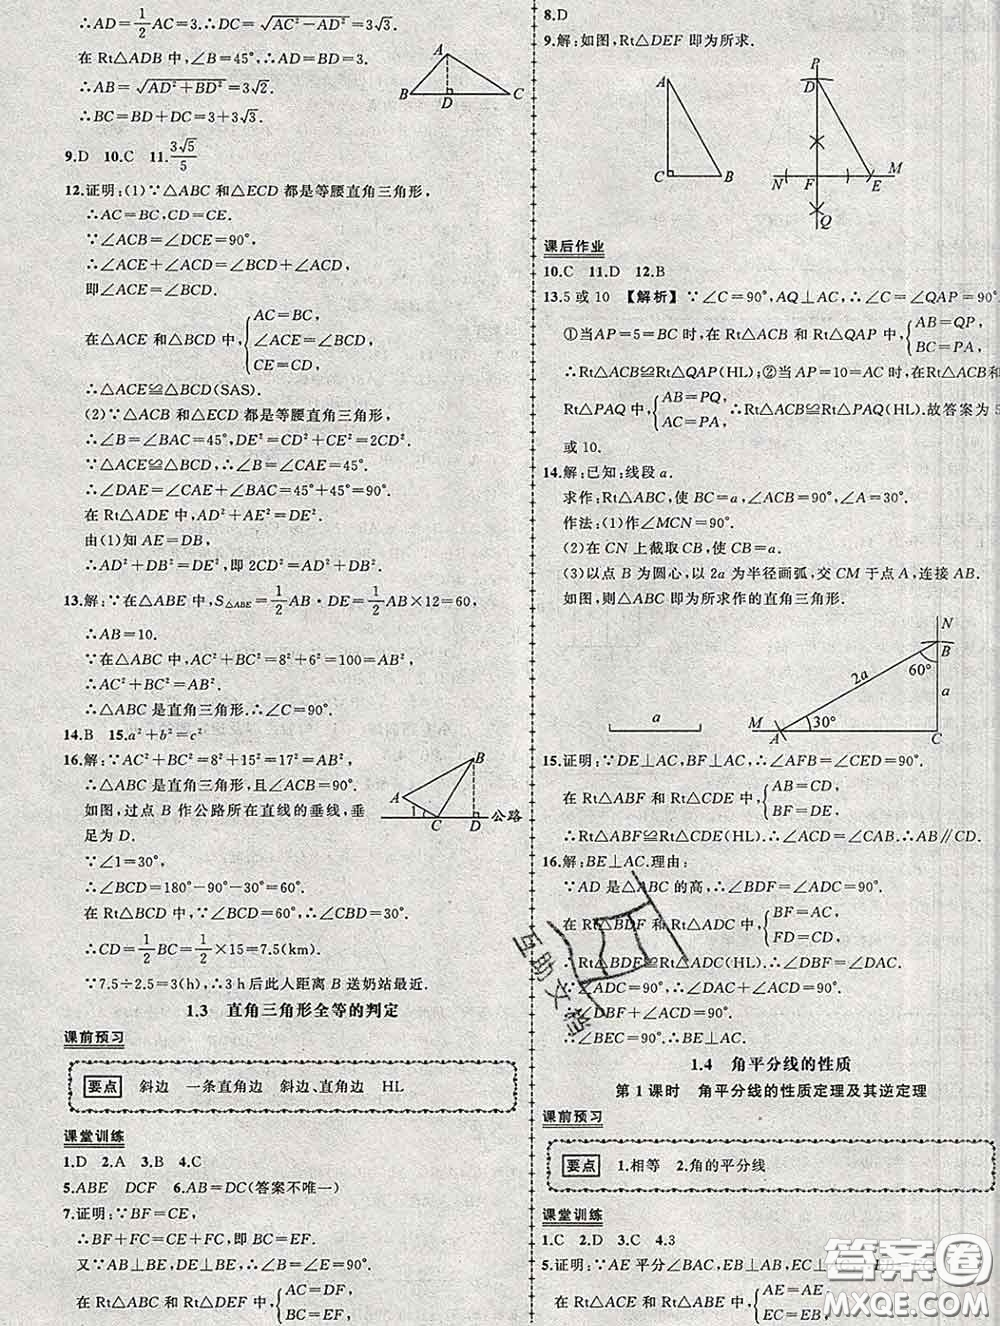 ∴AD=1/2AC=3.∴DC=√(AC²−AD²)=3√3.
在 Rt△ADB 中,∠B=45°,∴AD=BD=3.
∴AB=√(AD²+BD²)=3√2.
∴BC=BD+DC=3+3√3.
A
B
D
C
9.D 10.C 11.3√5/5
12.证明:(1)∵△ABC 和△ECD 都是等腰直角三角形,
∴AC=BC,CD=CE.
∵∠ACB=∠DCE=90°,
∴∠ACE+∠ACD=∠BCD+∠ACD,
即∠ACE=∠BCD.
在△ACE 和△BCD 中,{AC=BC,
∠ACE=∠BCD,
CE=CD,
∴△ACE≌△BCD(SAS).
(2)∵△ACB 和△ECD 都是等腰直角三角形,
∴∠B=∠BAC=45°,DE²=CD²+CE²=2CD².
∵△ACE≌△BCD,∴∠B=∠CAE=45°.
∴∠DAE=∠CAE+∠BAC=45°+45°=90°.
在 Rt△ADE 中,AD²+AE²=DE².
由(1)知 AE=DB,
∴AD²+DB²=DE²,即 2CD²=AD²+DB².
13.解:∵在△ABE 中,S△ABE=1/2AB·DE=1/2AB×12=60,
∴AB=10.
∵在△ABC 中,AC²+BC²=8²+6²=100=AB²,
∴AC²+BC²=AB².
∴△ABC 是直角三角形.∴∠C=90°.
14.B 15.a²+b²=c²
16.解:∵AC²+BC²=8²+15²=17²=AB²,
∴△ABC 是直角三角形,且∠ACB=90°.
如图,过点 B 作公路所在直线的垂线,垂
足为 D.
B
A
1
C
D
公路
∵∠1=30°,
∴∠BCD=180°−90°−30°=60°.
在 Rt△BCD 中,∵∠BCD=60°,∴∠CBD=30°.
∴CD=1/2BC=1/2×15=7.5(km).
∵7.5÷2.5=3(h),∴3 h 后此人距离 B 送奶站最近.
1.3 直角三角形全等的判定
课前预习
要点 斜边 一条直角边 斜边、直角边 HL
课堂训练
1.D 2.A 3.B 4.C
5.ABE DCF 6.AB=DC(答案不唯一)
7.证明:∵BF=CE,
∴BF+FC=CE+FC,即 BC=EF.
又∵AB⊥BE,DE⊥BE,∴∠B=∠E=90°.
在 Rt△ABC 和 Rt△DEF 中,{AC=DF,
BC=EF,
8.D
9.解:如图,Rt△DEF 即为所求.
A
C
B
P
D
N
F
E
M
Q
课后作业
10.C 11.D 12.B
13.5 或 10 【解析】∵∠C=90°,AQ⊥AC,∴∠C=∠QAP=90°
①当 AP=5=BC 时,在 Rt△ACB 和 Rt△QAP 中,{AB=QP,
BC=PA,
∴Rt△ACB≌Rt△QAP(HL);②当 AP=10=AC 时,在 Rt△ACB 和
Rt△PAQ 中,{AB=PQ,
AC=PA,
∴Rt△ACB≌Rt△PAQ(HL).故答案为 5
或 10.
14.解:已知:线段 a.
求作:Rt△ABC,使 BC=a,∠ACB=90°,∠A=30°.
作法:(1)作∠MCN=90°.
(2)在 CN 上截取 CB,使 CB=a.
(3)以点 B 为圆心,以 2a 为半径画弧,交 CM 于点 A,连接 AB.
如图,则△ABC 即为所求作的直角三角形.
N
B
60°
2a
a
a
M
A
30°
C
15.证明:∵DE⊥AC,BF⊥AC,∴∠AFB=∠CED=90°.
在 Rt△ABF 和 Rt△CDE 中,{AB=CD,
BF=DE,
∴Rt△ABF≌Rt△CDE(HL).∴∠ACD=∠CAB.∴AB∥CD.
16.解:BE⊥AC.理由:
∵AD 是△ABC 的高,∴∠BDF=∠ADC=90°.
在 Rt△BDF 和 Rt△ADC 中,{BF=AC,
FD=CD,
∴Rt△BDF≌Rt△ADC(HL).∴∠DBF=∠DAC.
∵∠ADC=90°,∴∠DAC+∠ACD=90°.
∴∠DBF+∠ACD=90°.
∴∠BEC=90°.∴BE⊥AC.
1.4 角平分线的性质
第 1 课时 角平分线的性质定理及其逆定理
课前预习
要点 1.相等 2.角的平分线
课堂训练
1.C 2.D 3.C 4.3
5.证明:∵AE 平分∠BAC,EB⊥AB,
在 Rt△ACE 和 Rt△ABE 中,{AE=AE,
互助文档
答案圈
MXQE.COM